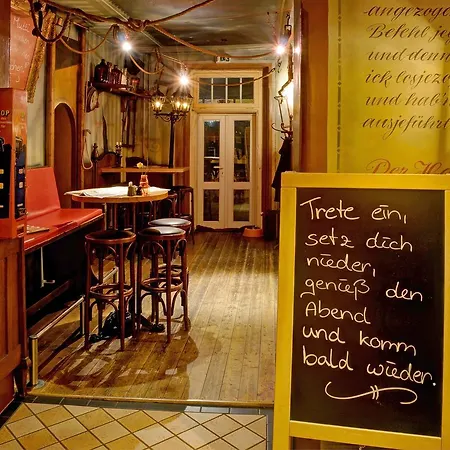 angezoge
Befehl jew
und denn
ick losjezo
und hab'n
ausjeführ
Der Ha
Trete ein,
setz dich
nieder,
genieß den
Abend
und komm
bald wieder.